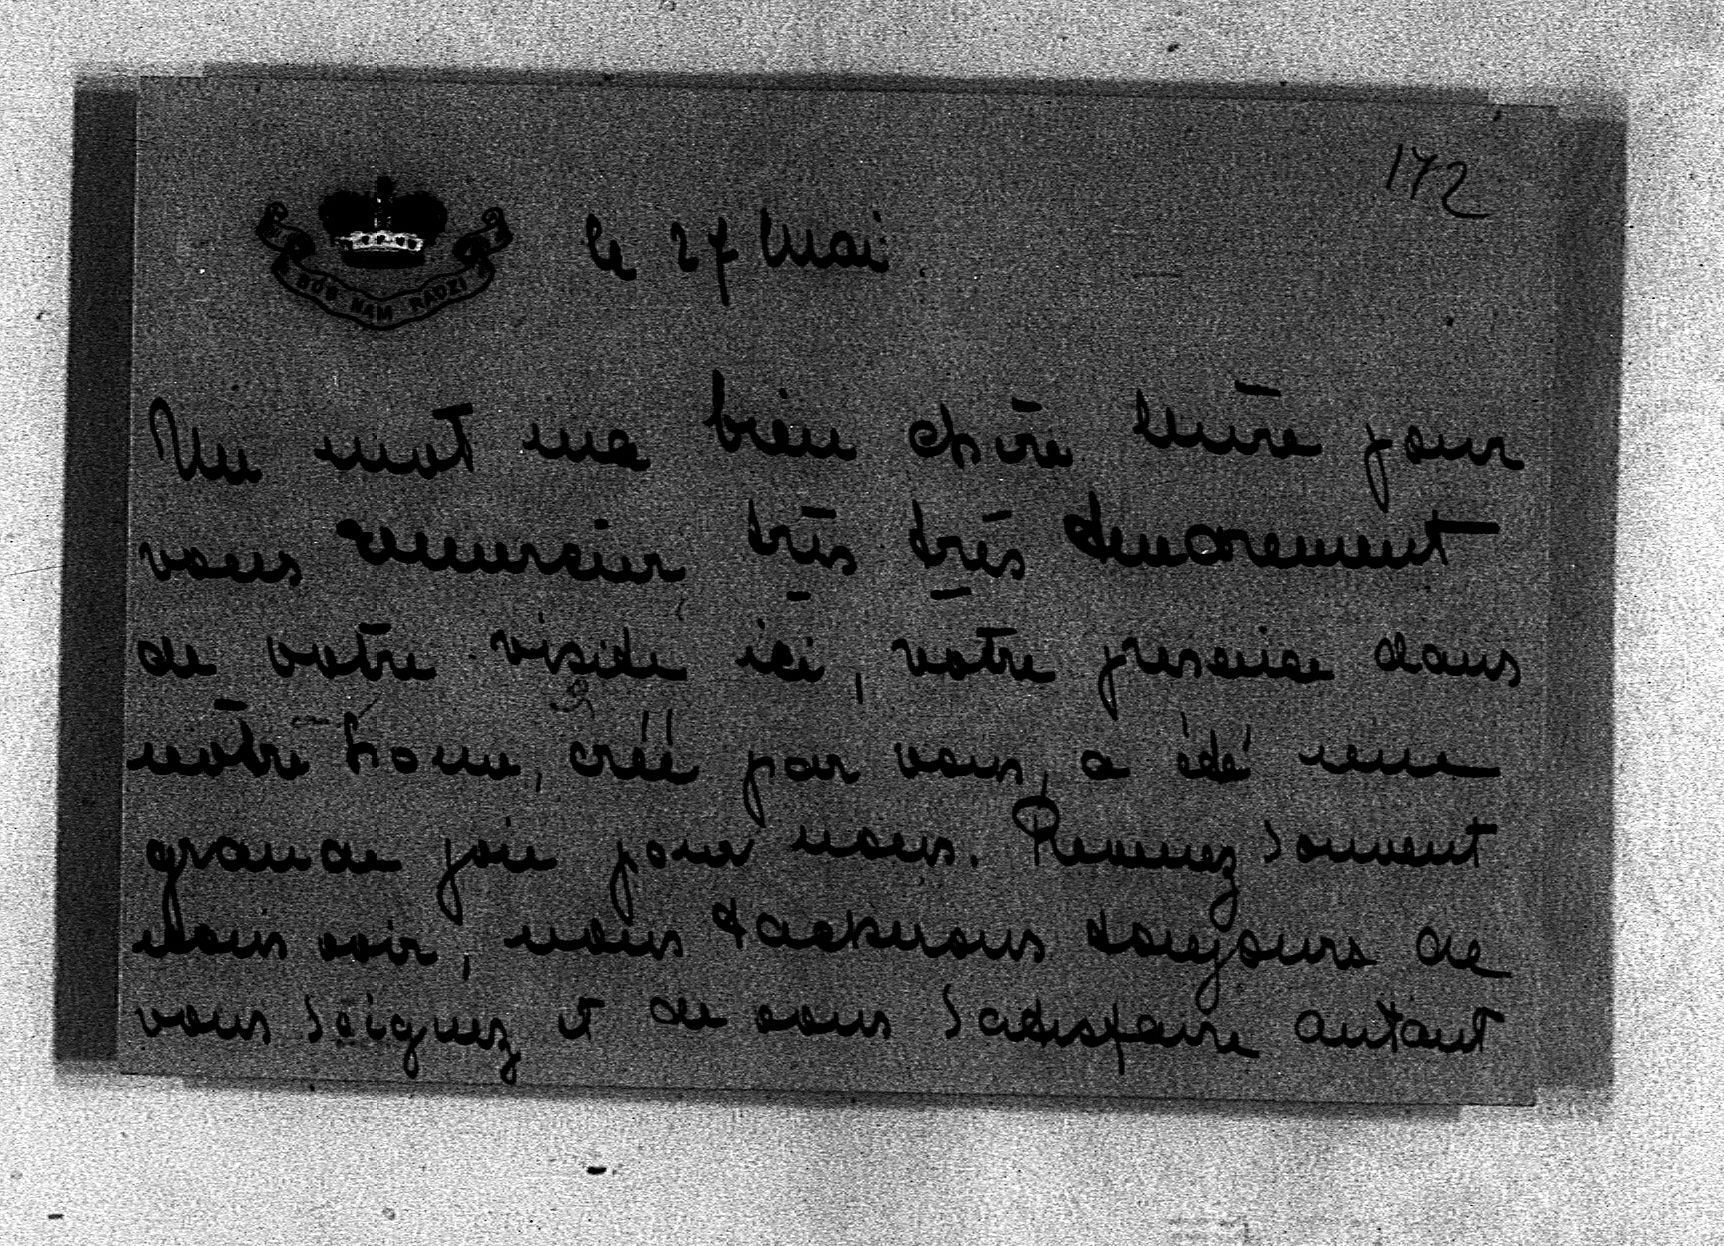 172
le 27 Mai.
BÓG NAM RADZI
Un mot ma bien chère Mère pour
vous remercier très très tendrement
de votre visite ici, votre presence dans
nôtre home, créé par vous, a été une
grande joie pour nous. Revenez souvent
nous voir, nous tacherons toujours de
vous soignez et de vous satisfaire autant